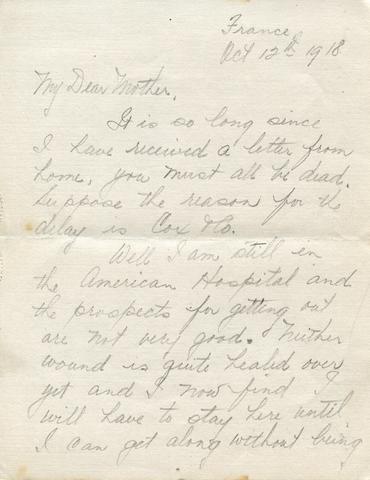 France
Oct 12th 1918
My Dear Mother,
It is so long since
I have received a letter from
home, you must all be dead.
Suppose the reason for the
delay is Cox & Co.
Well I am still in
the American Hospital and
the prospects for getting out
are not very good. Neither
wound is quite healed over
yet and I now find I
will have to stay here until
I can get along without being